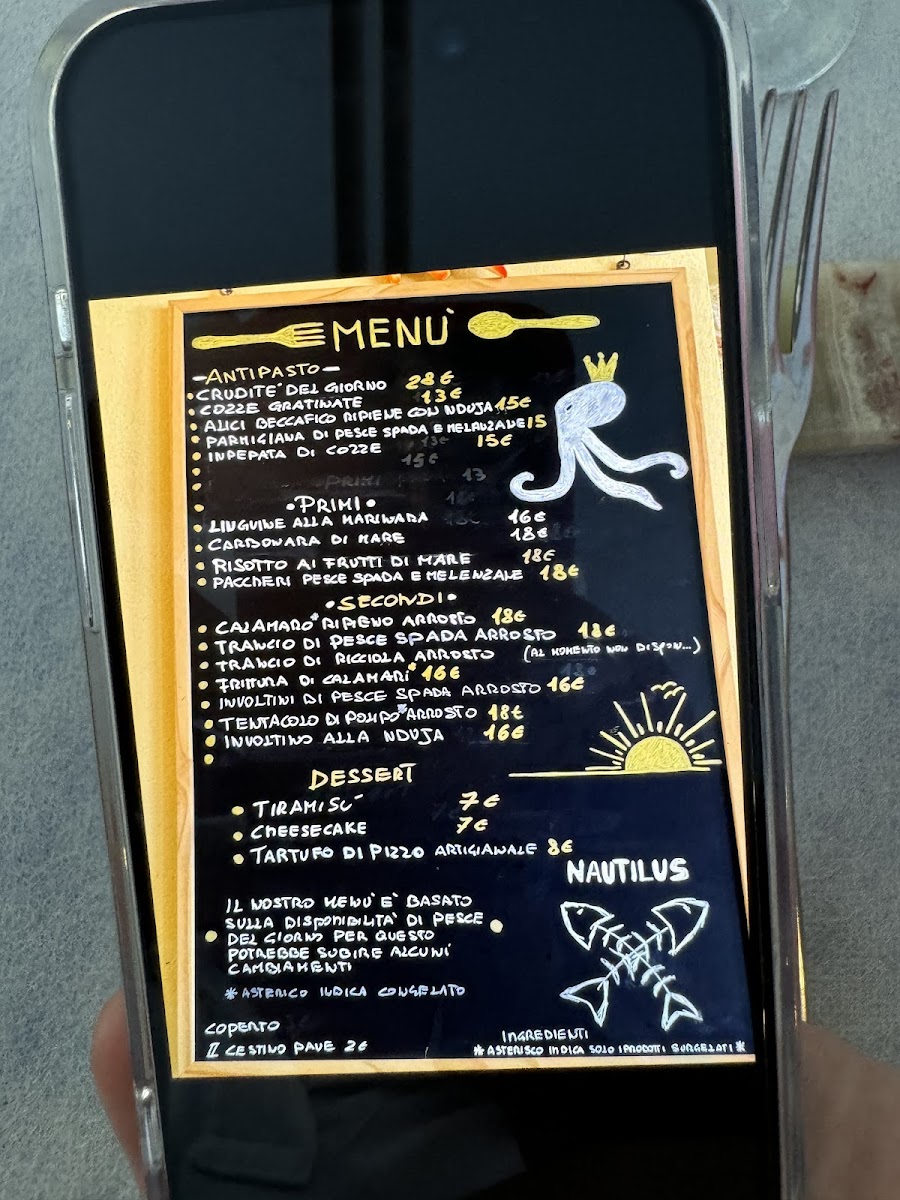 MENÙ
-ANTIPASTO-
CRUDITE' DEL GIORNO 28€
COZZE GRATINATE 13€
ALICI BECCAFICO RIPIENE CON NDUJA 15€
PARMIGIANA DI PESCE SPADA E MELANZANE 15
INPEPATA DI COZZE 15€
•PRIMI•
LINGUINE ALLA MARINARA 16€
CARBONARA DI MARE 18€
RISOTTO AI FRUTTI DI MARE 18€
PACCHERI PESCE SPADA E MELENZALE 18€
•SECONDI•
CALAMARO* RIPIENO ARROSTO 18€
TRANCIO DI PESCE SPADA ARROSTO 18€
TRANCIO DI RICCIOLA ARROSTO (AL MOMENTO NON DISPON...)
FRITTURA DI CALAMARI* 16€
INVOLTINI DI PESCE SPADA ARROSTO 16€
TENTACOLO DI POLIPO* ARROSTO 18€
INVOLTINO ALLA NDUJA 16€
DESSERT
TIRAMISU' 7€
CHEESECAKE 7€
TARTUFO DI PIZZO ARTIGIANALE 8€
NAUTILUS
IL NOSTRO MENU' E' BASATO
SULLA DISPONIBILITA' DI PESCE
DEL GIORNO PER QUESTO
POTREBBE SUBIRE ALCUNI
CAMBIAMENTI
*ASTERICO INDICA CONGELATO
COPERTO
IL CESTINO PANE 2€
INGREDIENTI
*ASTERISCO INDICA SOLO I PRODOTTI SURGELATI*